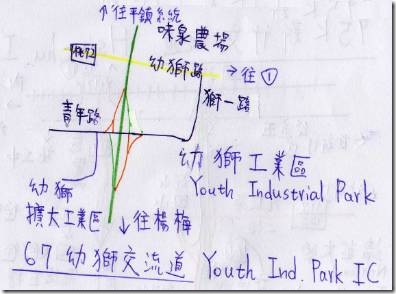 ↑往平鎮系統
味泉農場
幼獅路
→往①
獅一路
青年路
幼獅工業區
Youth Industrial Park
幼獅
擴大工業區
↓往楊梅
67 幼獅交流道 Youth Ind. Park IC